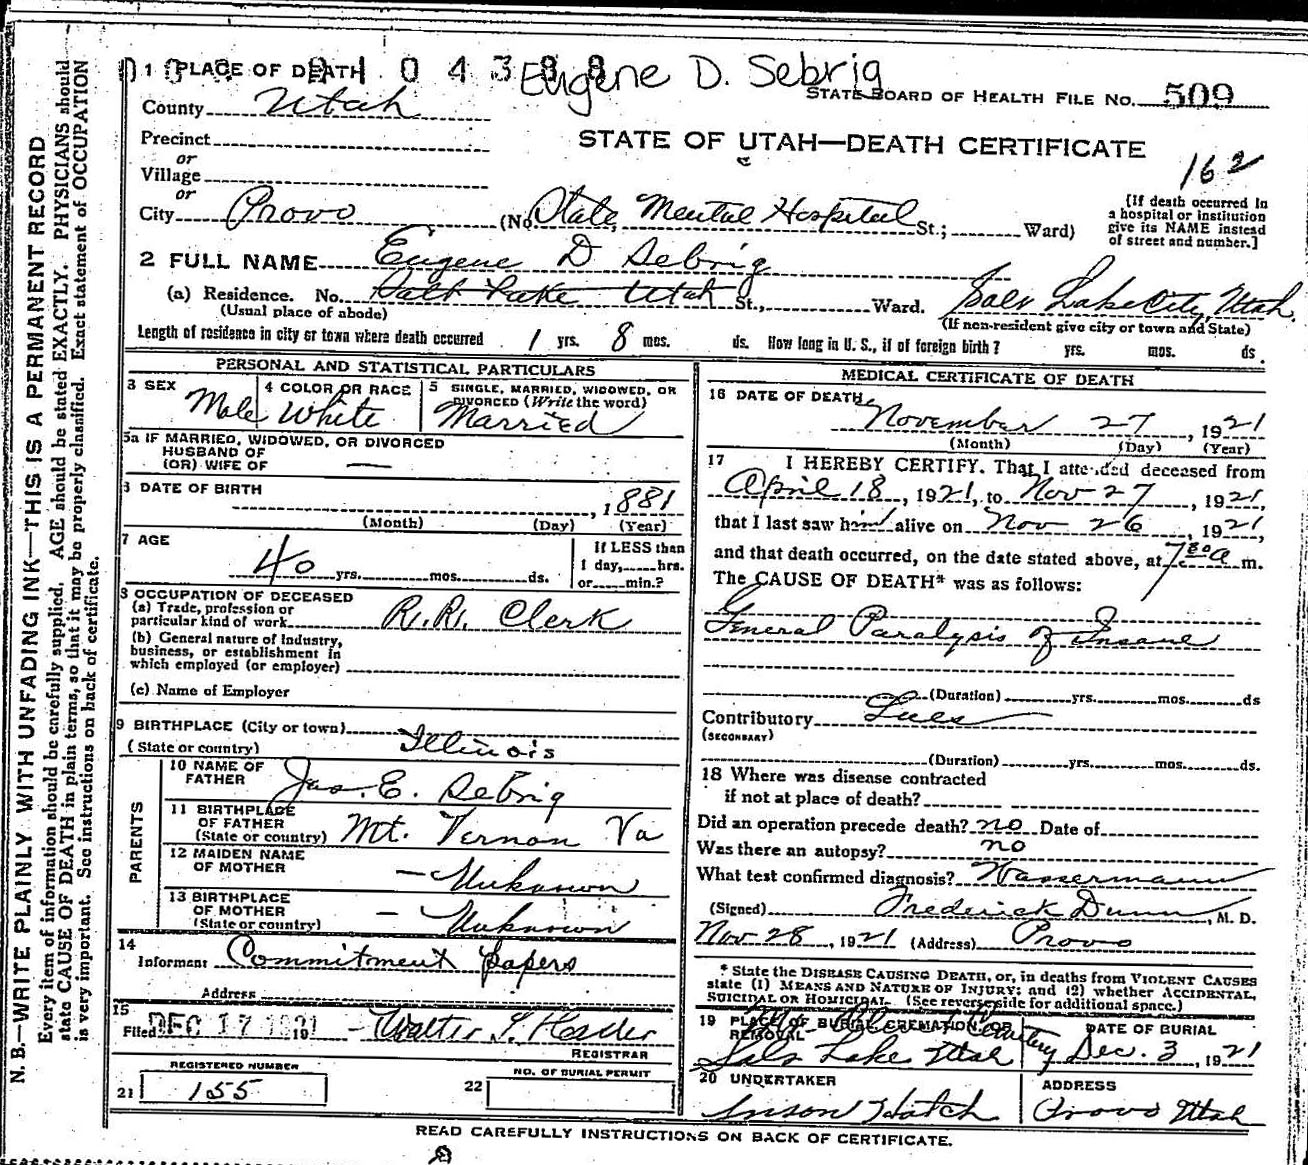 1 PLACE OF DEATH
Eugene D. Sebrig
STATE BOARD OF HEALTH FILE NO. 509
County Utah
STATE OF UTAH—DEATH CERTIFICATE
Precinct
or
Village
162
or
City Provo (No. State Mental Hospital St.; Ward)
[If death occurred in
a hospital or institution
give its NAME instead
of street and number.]
2 FULL NAME Eugene D Sebrig
(a) Residence. No. Salt Lake Utah St., Ward. Salt Lake City, Utah.
(Usual place of abode) (If non-resident give city or town and State)
Length of residence in city or town where death occurred 1 yrs. 8 mos. ds. How long in U. S., if of foreign birth? yrs. mos. ds.
PERSONAL AND STATISTICAL PARTICULARS
3 SEX Male
4 COLOR OR RACE White
5 SINGLE, MARRIED, WIDOWED, OR
DIVORCED (Write the word)
Married
5a IF MARRIED, WIDOWED, OR DIVORCED
HUSBAND OF
(OR) WIFE OF —
DATE OF BIRTH
, 1881
(Month) (Day) (Year)
7 AGE
40 yrs. mos. ds.
If LESS than
1 day, hrs.
or min.?
8 OCCUPATION OF DECEASED
(a) Trade, profession or
particular kind of work R.R. Clerk
(b) General nature of Industry,
business, or establishment in
which employed (or employer)
(c) Name of Employer
9 BIRTHPLACE (City or town)
(State or country) Illinois
PARENTS
10 NAME OF
FATHER Jas. E. Sebrig
11 BIRTHPLACE
OF FATHER
(State or country) Mt. Vernon Va
12 MAIDEN NAME
OF MOTHER — Unknown
13 BIRTHPLACE
OF MOTHER
(State or country) — Unknown
14
Informent Commitment papers
Address
15
Filed DEC 17 1921 19 Walter T. Hasler
REGISTRAR
REGISTERED NUMBER
21 155
NO. OF BURIAL PERMIT
22
MEDICAL CERTIFICATE OF DEATH
16 DATE OF DEATH
November 27, 1921
(Month) (Day) (Year)
17 I HEREBY CERTIFY. That I attended deceased from
April 18, 1921, to Nov 27, 1921,
that I last saw him alive on Nov 26, 1921,
and that death occurred, on the date stated above, at 7:30 a m.
The CAUSE OF DEATH* was as follows:
General Paralysis of Insane
(Duration) yrs. mos. ds
Contributory Lues
(SECONDARY)
(Duration) yrs. mos. ds.
18 Where was disease contracted
if not at place of death?
Did an operation precede death? no Date of
Was there an autopsy? no
What test confirmed diagnosis? Wassermann
(Signed) Frederick Dunn, M. D.
Nov 28, 1921 (Address) Provo
* State the DISEASE CAUSING DEATH, or, in deaths from VIOLENT CAUSES
state (1) MEANS AND NATURE OF INJURY; and (2) whether ACCIDENTAL,
SUICIDAL OR HOMICIDAL. (See reverse side for additional space.)
19 PLACE OF BURIAL CREMATION OR
REMOVAL Cemetery
Salt Lake Utah
DATE OF BURIAL
Dec. 3, 1921
20 UNDERTAKER
Hatch
ADDRESS
Provo Utah
READ CAREFULLY INSTRUCTIONS ON BACK OF CERTIFICATE.
N. B.—WRITE PLAINLY WITH UNFADING INK—THIS IS A PERMANENT RECORD
Every item of information should be carefully supplied. AGE should be stated EXACTLY. PHYSICIANS should
state CAUSE OF DEATH in plain terms, so that it may be properly classified. Exact statement of OCCUPATION
is very important. See instructions on back of certificate.